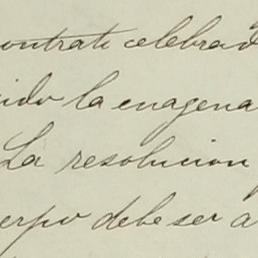 contrato celebrad
ido la enagena
La resolucion
erpo debe ser a